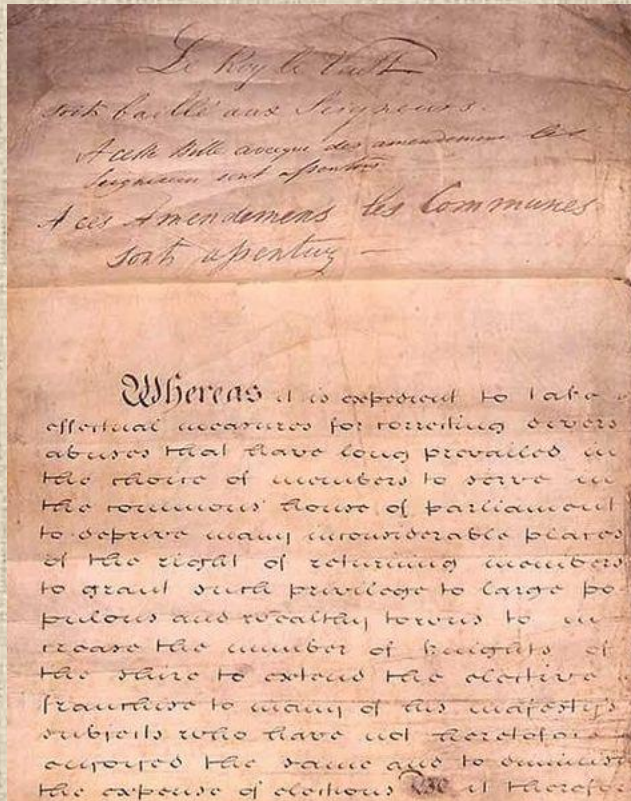 Le Roy le Veult
soit baillé aux Seigneurs.
A ceste Bille avecque des amendemens les
Seigneurs sont assentus
A ces Amendemens les Communes
sont assentuz
Whereas it is expedient to take
effectual measures for correcting divers
abuses that have long prevailed in
the choice of members to serve in
the commons house of parliament
to deprive many inconsiderable places
of the right of returning members
to grant such privilege to large po
pulous and wealthy towns to in
crease the number of knights of
the shire to extend the elective
franchise to many of his majesty's
subjects who have not heretofore
enjoyed the same and to diminish
the expense of elections BE it therefore